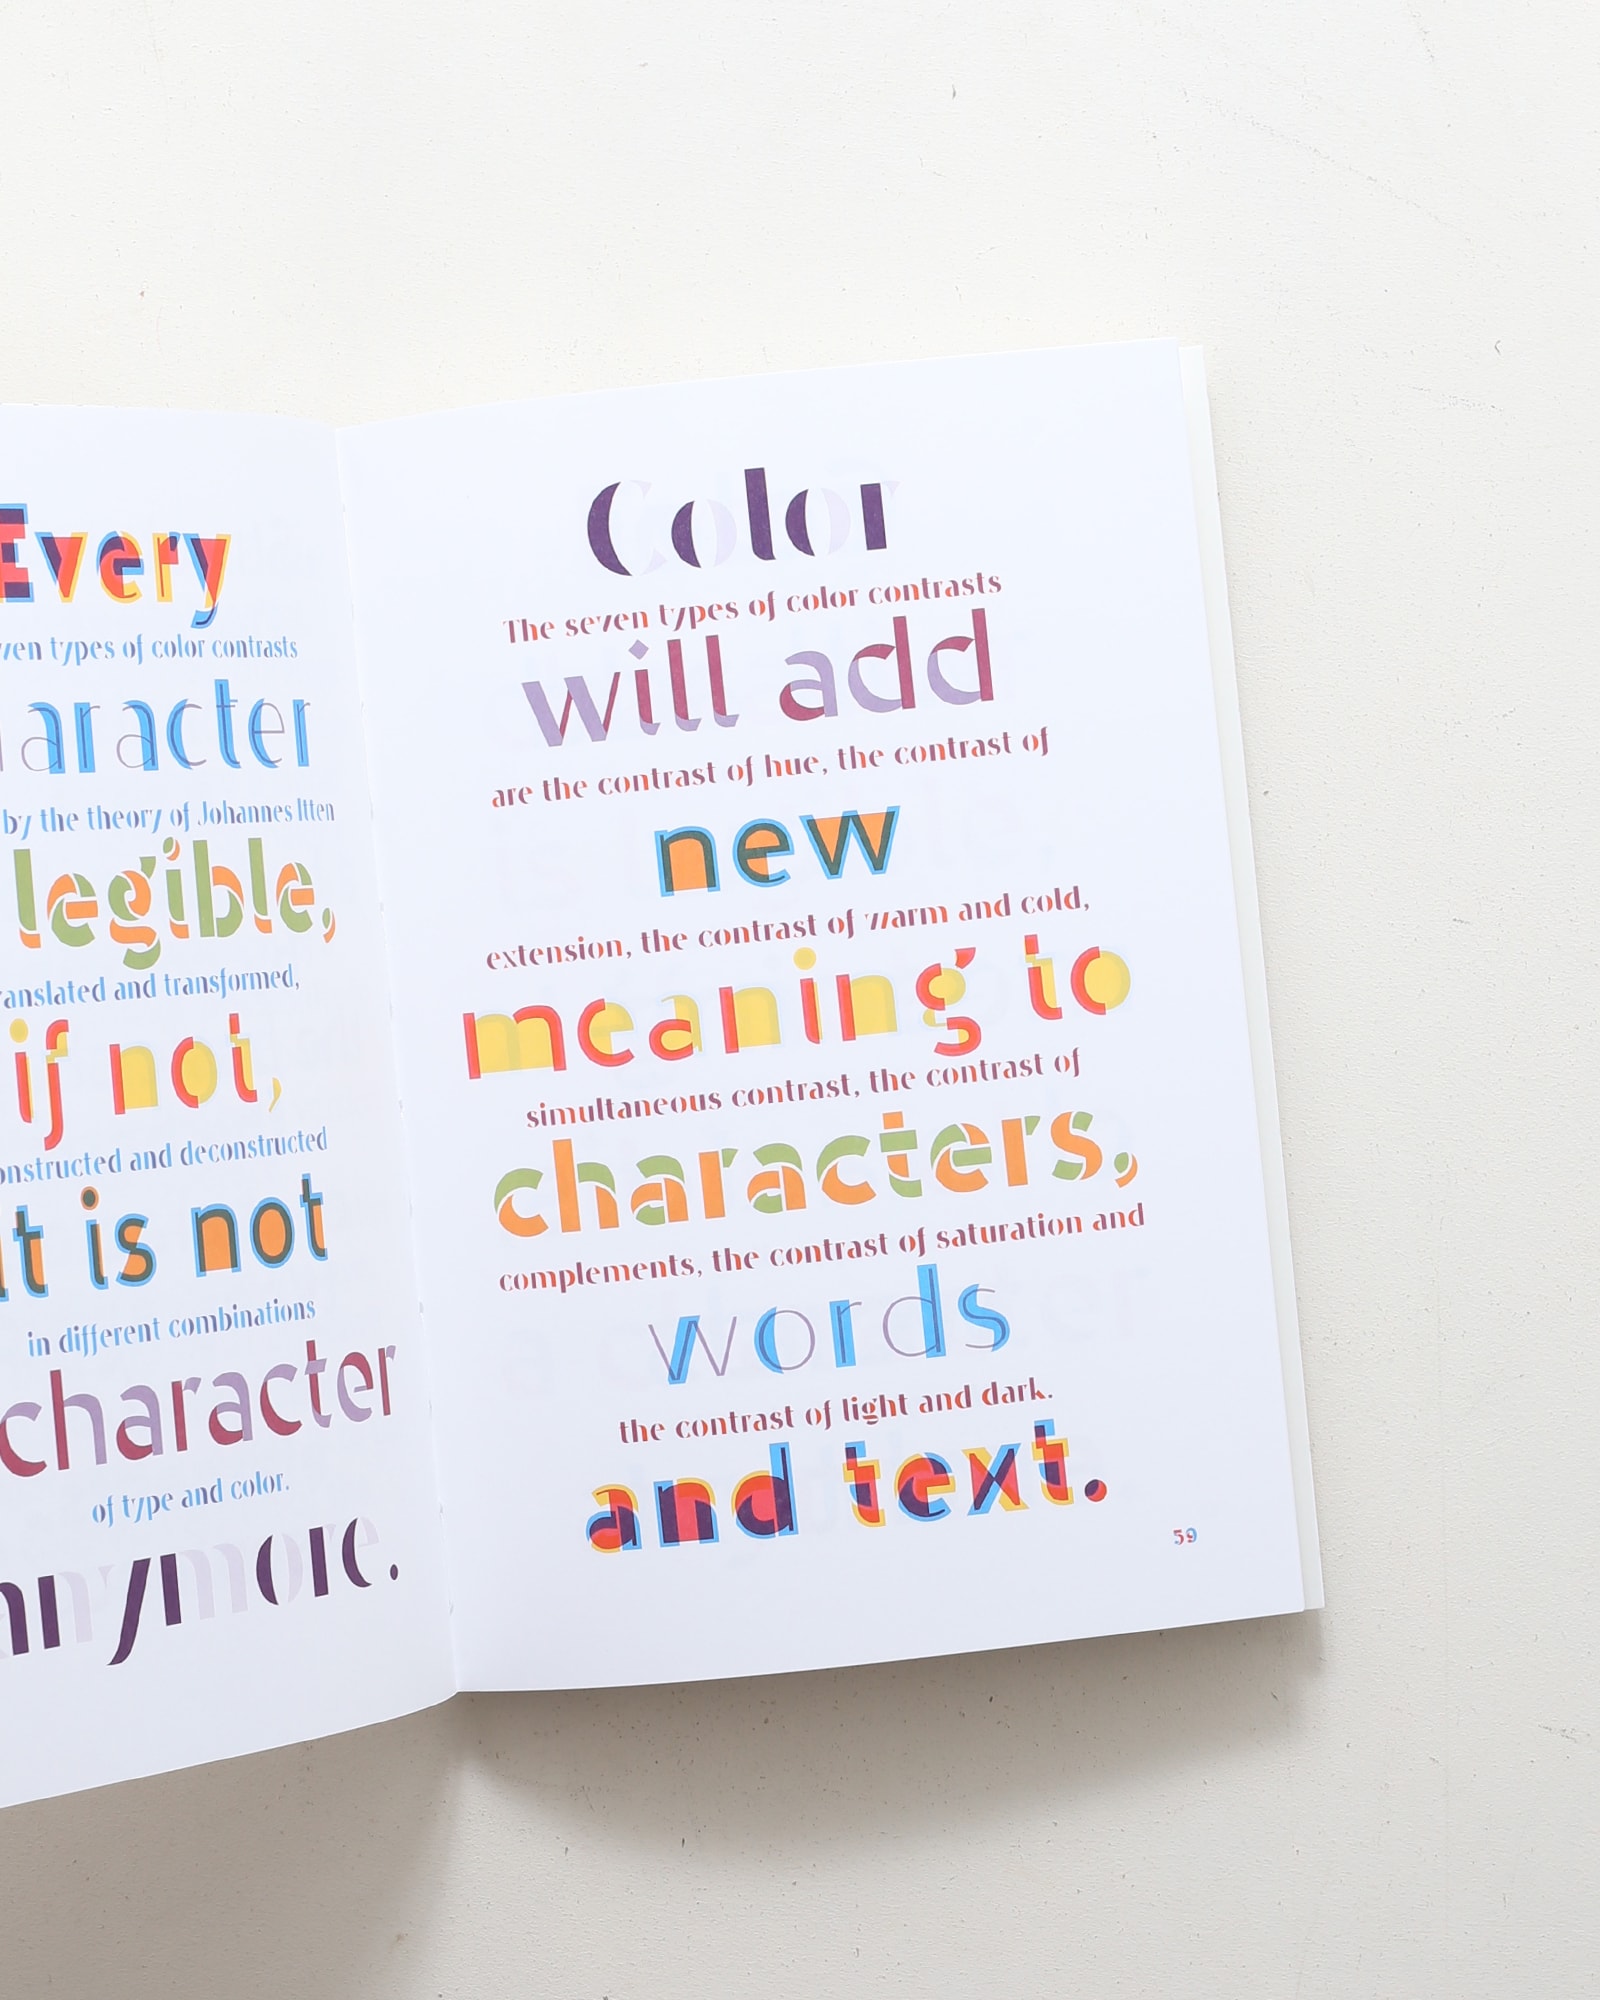 Every
types of color contrasts
by the theory of Johannes Itten
legible,
and transformed,
if not,
and deconstructed
is not
in different combinations
character
of type and color.
Color
The seven types of color contrasts
will add
are the contrast of hue, the contrast of
new
extension, the contrast of warm and cold,
meaning to
simultaneous contrast, the contrast of
characters,
complements, the contrast of saturation and
words
the contrast of light and dark.
and text.
59